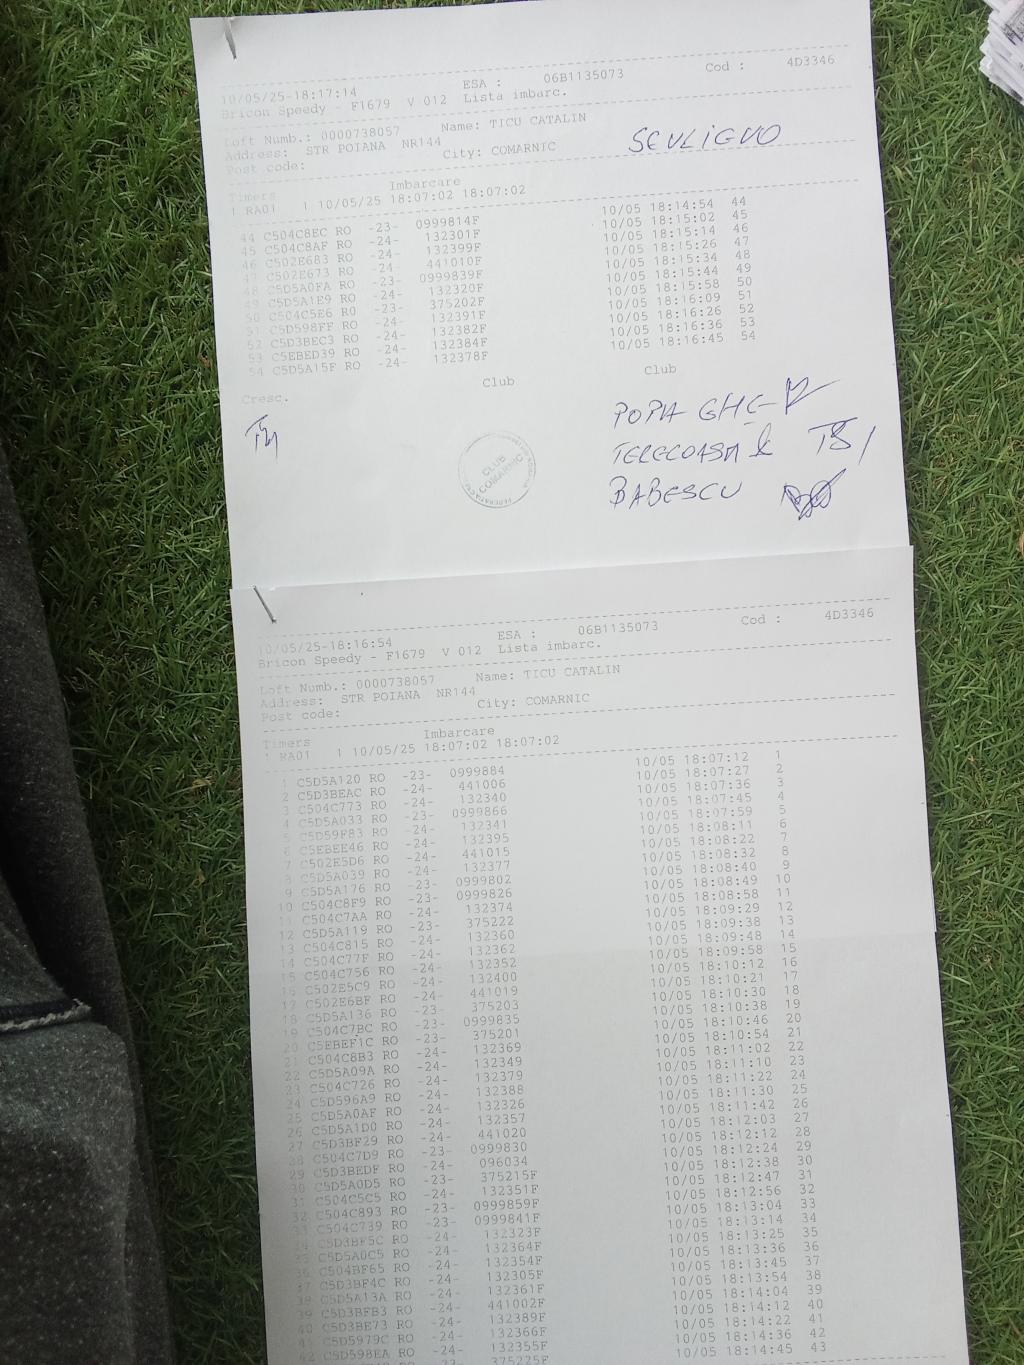 10/05/25-18:17:14 ESA : 06B1135073 Cod : 4D3346
Bricon Speedy - F1679 V 012 Lista imbarc.
Loft Numb.: 0000738057 Name: TICU CATALIN
Address: STR POIANA NR144 City: COMARNIC
Post code:
SEVLIEVO
Timers Imbarcare
1 RA01 1 10/05/25 18:07:02 18:07:02
44 C504C8EC RO -23- 0999814F 10/05 18:14:54 44
45 C504C8AF RO -24- 132301F 10/05 18:15:02 45
46 C502E683 RO -24- 132399F 10/05 18:15:14 46
47 C502E673 RO -24- 441010F 10/05 18:15:26 47
48 C5D5A0FA RO -23- 0999839F 10/05 18:15:34 48
49 C5D5A1E9 RO -24- 132320F 10/05 18:15:44 49
50 C504C5E6 RO -23- 375202F 10/05 18:15:58 50
51 C5D598FF RO -24- 132391F 10/05 18:16:09 51
52 C5D3BEC3 RO -24- 132382F 10/05 18:16:26 52
53 C5EBED39 RO -24- 132384F 10/05 18:16:36 53
54 C5D5A15F RO -24- 132378F 10/05 18:16:45 54
Cresc. Club Club
POPA GHE
CLUB
COMARNIC
BABESCU
10/05/25-18:16:54 ESA : 06B1135073 Cod : 4D3346
Bricon Speedy - F1679 V 012 Lista imbarc.
Loft Numb.: 0000738057 Name: TICU CATALIN
Address: STR POIANA NR144 City: COMARNIC
Post code:
Timers Imbarcare
1 RA01 1 10/05/25 18:07:02 18:07:02
1 C5D5A120 RO -23- 0999884 10/05 18:07:12 1
2 C5D3BEAC RO -24- 441006 10/05 18:07:27 2
3 C504C773 RO -24- 132340 10/05 18:07:36 3
4 C5D5A033 RO -23- 0999866 10/05 18:07:45 4
5 C5D59F83 RO -24- 132341 10/05 18:07:59 5
6 C5EBEE46 RO -24- 132395 10/05 18:08:11 6
7 C502E5D6 RO -24- 441015 10/05 18:08:22 7
8 C5D5A039 RO -24- 132377 10/05 18:08:32 8
9 C5D5A176 RO -23- 0999802 10/05 18:08:40 9
10 C504C8F9 RO -23- 0999826 10/05 18:08:49 10
11 C504C7AA RO -24- 132374 10/05 18:08:58 11
12 C5D5A119 RO -23- 375222 10/05 18:09:29 12
13 C504C815 RO -24- 132360 10/05 18:09:38 13
14 C504C77F RO -24- 132362 10/05 18:09:48 14
15 C504C756 RO -24- 132352 10/05 18:09:58 15
16 C502E5C9 RO -24- 132400 10/05 18:10:12 16
17 C502E6BF RO -24- 441019 10/05 18:10:21 17
18 C5D5A136 RO -23- 375203 10/05 18:10:30 18
19 C504C7BC RO -23- 0999835 10/05 18:10:38 19
20 C5EBEF1C RO -23- 375201 10/05 18:10:46 20
21 C504C8B3 RO -24- 132369 10/05 18:10:54 21
22 C5D5A09A RO -24- 132349 10/05 18:11:02 22
23 C504C726 RO -24- 132379 10/05 18:11:10 23
24 C5D596A9 RO -24- 132388 10/05 18:11:22 24
25 C5D5A0AF RO -24- 132326 10/05 18:11:30 25
26 C5D5A1D0 RO -24- 132357 10/05 18:11:42 26
27 C5D3BF29 RO -24- 441020 10/05 18:12:03 27
28 C504C7D9 RO -23- 0999830 10/05 18:12:12 28
29 C5D3BEDF RO -24- 096034 10/05 18:12:24 29
30 C5D5A0D5 RO -23- 375215F 10/05 18:12:38 30
31 C504C5C5 RO -24- 132351F 10/05 18:12:47 31
32 C504C893 RO -23- 0999859F 10/05 18:12:56 32
33 C504C739 RO -23- 0999841F 10/05 18:13:04 33
34 C5D3BF5C RO -24- 132323F 10/05 18:13:14 34
35 C5D5A0C5 RO -24- 132364F 10/05 18:13:25 35
36 C504BF65 RO -24- 132354F 10/05 18:13:36 36
37 C5D3BF4C RO -24- 132305F 10/05 18:13:45 37
38 C5D5A13A RO -24- 132361F 10/05 18:13:54 38
39 C5D3BFB3 RO -24- 441002F 10/05 18:14:04 39
40 C5D3BE73 RO -24- 132389F 10/05 18:14:12 40
41 C5D5979C RO -24- 132366F 10/05 18:14:22 41
42 C5D598EA RO -24- 132355F 10/05 18:14:36 42
375225F 10/05 18:14:45 43